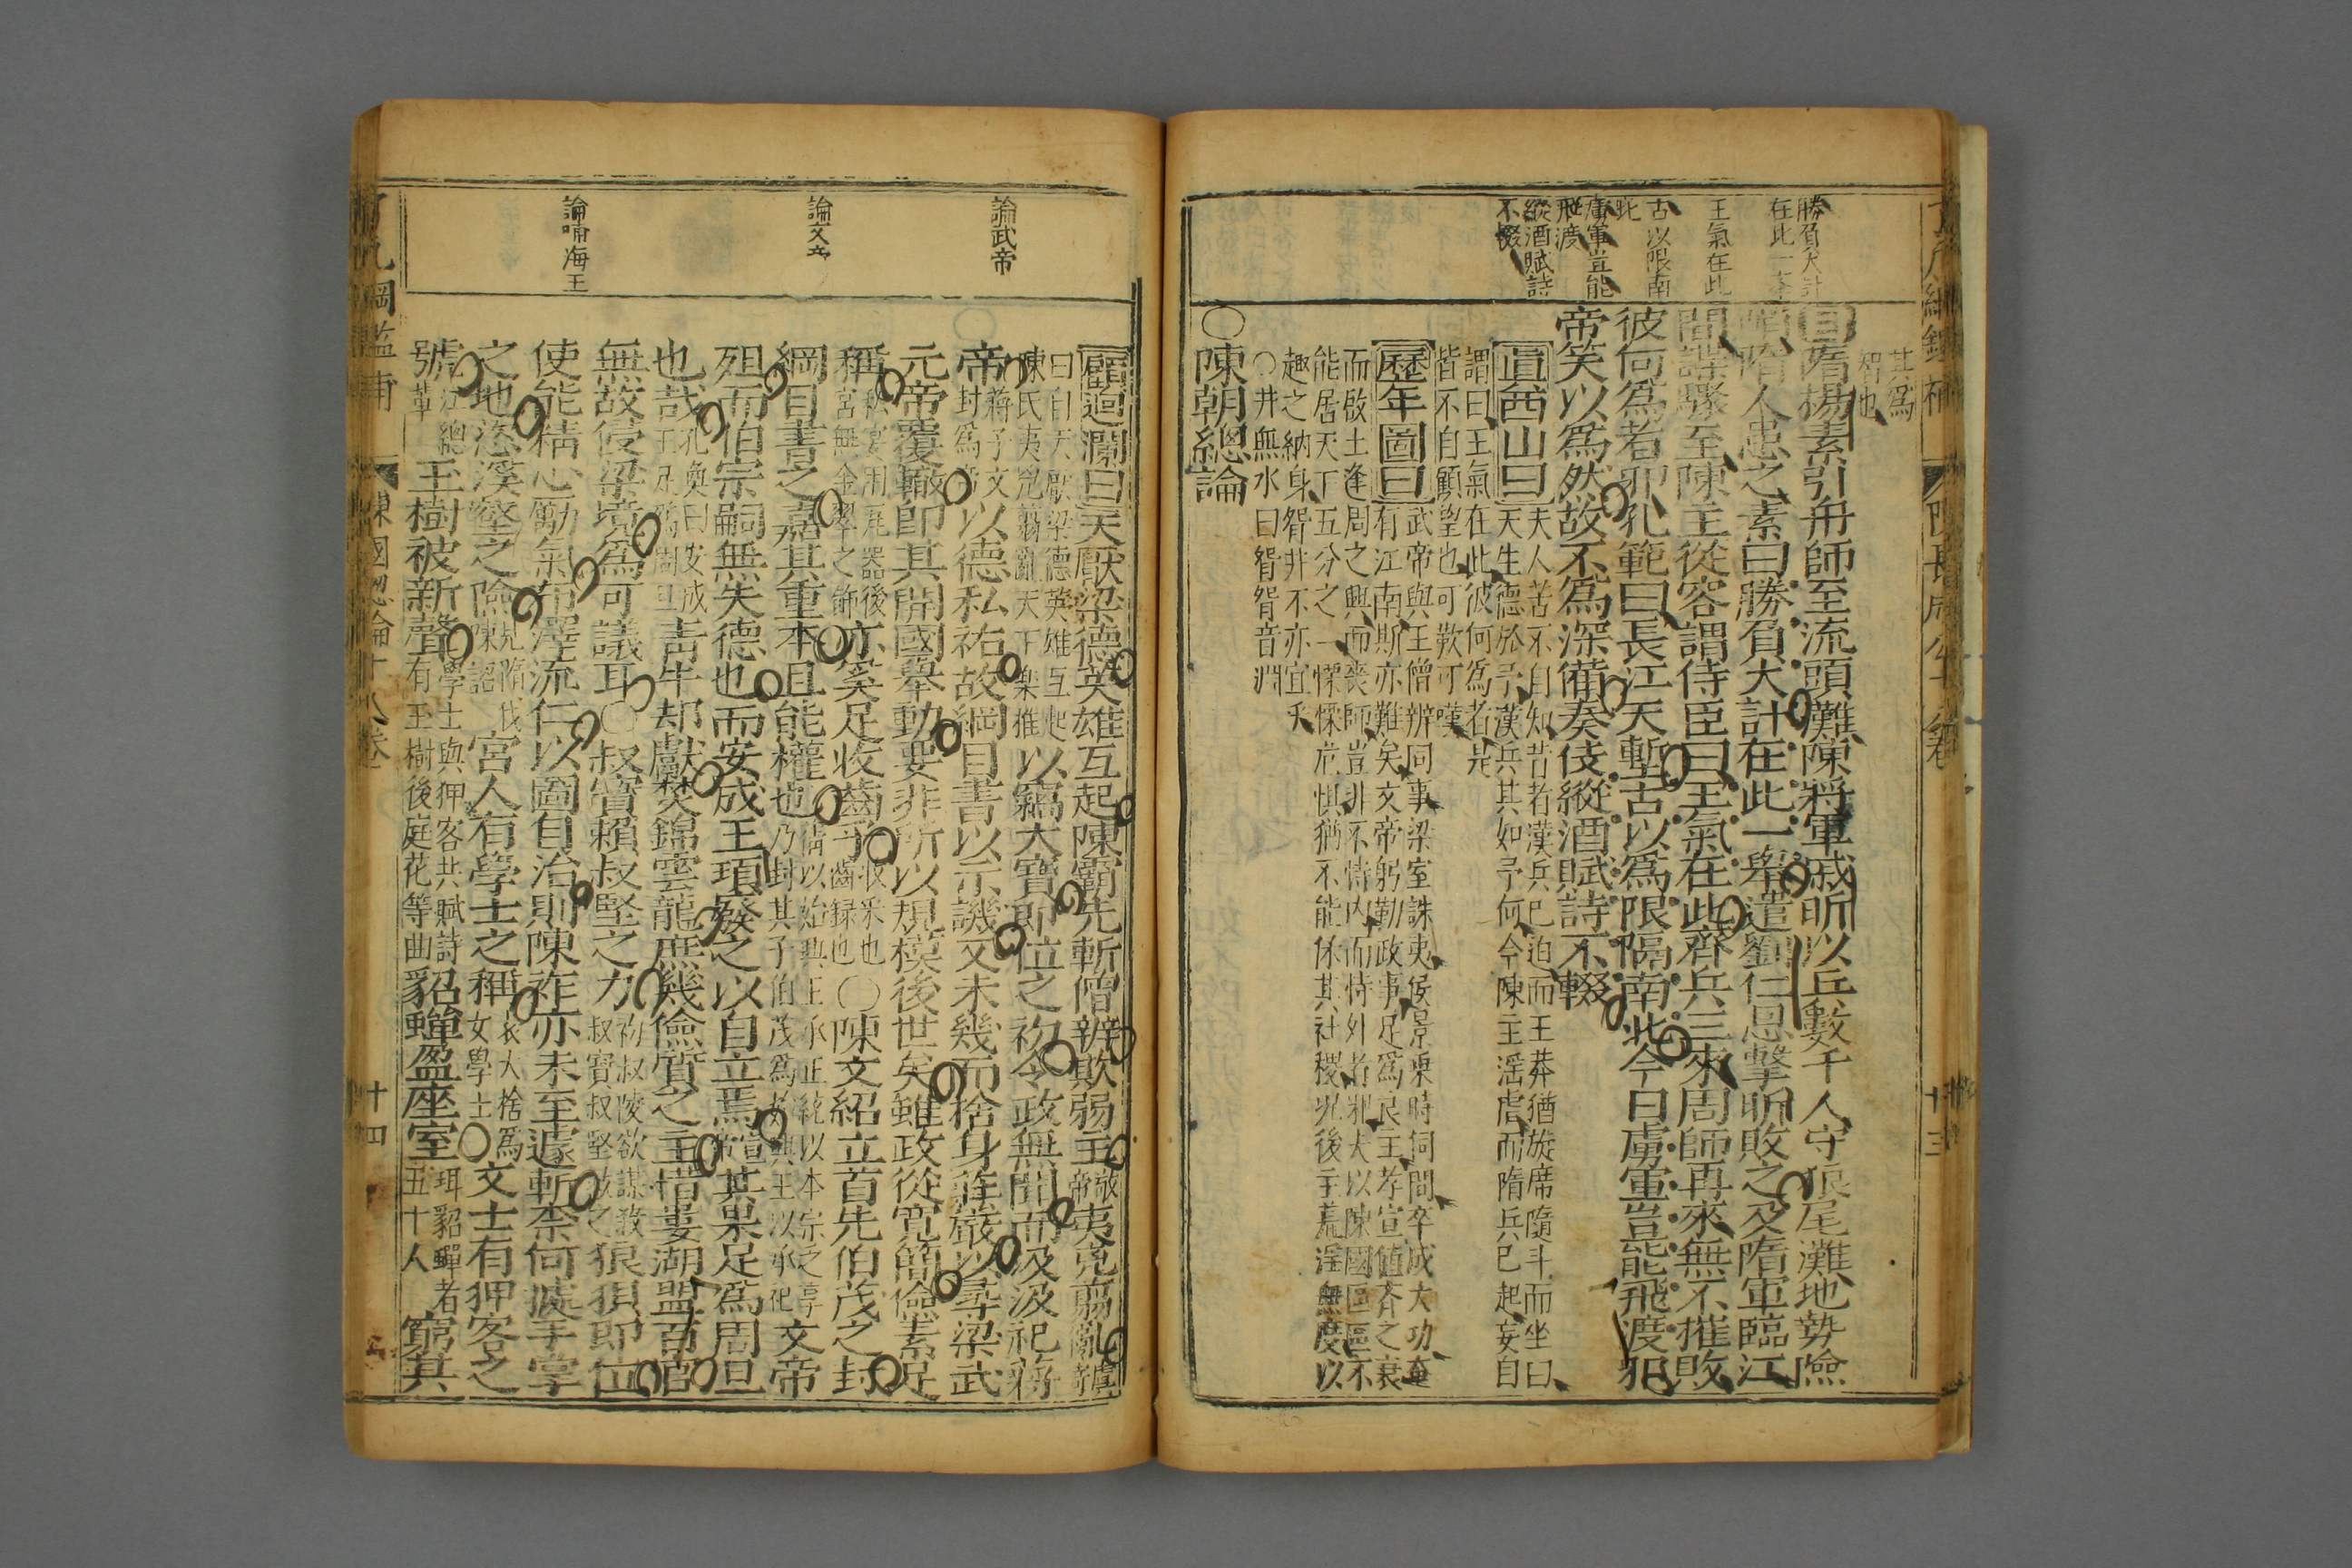 勝負大計
在此一舉
王氣在此
古以限南
北
虜軍豈能
飛渡
縱酒賦詩
不輟
其爲
智也
目隋楊素引舟師至流頭灘陳將軍戚昕以兵數千人守狼尾灘地勢險
峭隋人患之素曰勝負大計在此一舉遣劉仁恩擊昕敗之及隋軍臨江
間諜驟至陳主從容謂侍臣曰王氣在此齊兵三來周師再來無不摧敗
彼何爲者邪孔範曰長江天塹古以爲限隔南北今日虜軍豈能飛渡邪
帝笑以爲然故不爲深備奏伎縱酒賦詩不輟
眞西山曰
夫人苦不自知苦者漢兵已迫而王莽猶旋席隨斗而坐曰
天生德於予漢兵其如予何今陳主滛虐而隋兵已起妄自
謂曰王氣在此彼何爲者是
皆不自顧望也可歎可嘆
歷年圖曰
武帝與王僧辨同事梁室誅夷侯景乗時伺間卒成大功奄
有江南斯亦難矣文帝躬勤政事足爲良王孝宣値齊之衰
而啟土逢周之興而喪師豈非不恃內而恃外者邪夫以陳國區區不
能居天下五分之一慄慄危惧猶不能保其社稷况後主荒滛無度以
趣之納身眢井不亦宜乎
○井無水曰眢眢音淵
○陳朝總論
陳長城公十八卷
十三
論武帝
論文帝
論臨海王
顧迴瀾曰天厭梁德英雄互起陳霸先斬僧辨欺弱主敬帝夷兇剪亂
曰自天厭梁德英雄互起
陳氏夷兇剪亂天下樂推
以竊大寶即位之初令政無聞而汲汲祀蔣
帝
蔣子文
封爲帝
以德私祐故綱目書以示譏又未幾而捨身莊嚴以尋梁武
元帝覆轍即其開國舉動要非所以規模後世矣雖政從寬簡儉素足
稱
私宴用瓦器後
宮無金翠之飾
亦奚足收齒乎
收采也
齒録也
○陳文紹立首先伯茂之封
綱目書之嘉其重本且能權也
倩以始興王承正統以本宗之享
乃封其子伯茂爲始興王以承祀
文帝
殂而伯宗嗣無失德也而安成王頊發之以自立焉頊其果足爲周旦
也哉
孔奐曰安成
王足爲周旦
青牛却獻焚錦雲龍庶幾儉質之主惜婁湖盟百官
無故侵梁境爲可議耳○叔寶賴叔堅之力
初叔陵欲謀殺
叔寳叔堅救之
狼狽即位
使能精心勵氣布澤流仁以圖自治則陳祚亦未至遽斬柰何旋手掌
之地恣溪壑之險
見隋伐
陳詔
宮人有學士之稱
衣大捨爲
女學士
○文士有狎客之
號
江總
輩
玉樹被新聲
學士與狎客共賦詩
有玉樹後庭花等曲
貂蟬盈座室
珥貂蟬者
五十人
窮其
了凡綱鑑補
陳國總論十八卷
十四